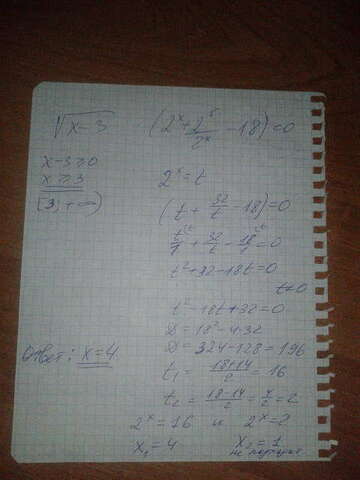 √x-3 (2^x + 2^5/2^x - 18) = 0
x-3≥0
x≥3
[3; +∞)
2^x = t
(t + 32/t - 18) = 0
t^t/1 + 32/t - 18^t/1 = 0
t² + 32 - 18t = 0
t≠0
t² - 18t + 32 = 0
D = 18² - 4·32
D = 324 - 128 = 196
t₁ = (18+14)/2 = 16
t₂ = (18-14)/2 = 4/2 = 2
2^x = 16 и 2^x = 2
x₁ = 4 x₂ = 1
не подходит
Ответ: x = 4